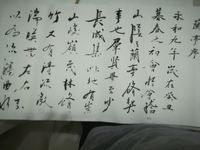 蘭亭序
永和九年歲在癸丑
暮春之初會于會稽
山陰之蘭亭修禊
事也群賢畢至少
長咸集此地有崇
山峻領茂林修
竹又有清流激
湍映帶左右引
以為流觴曲水